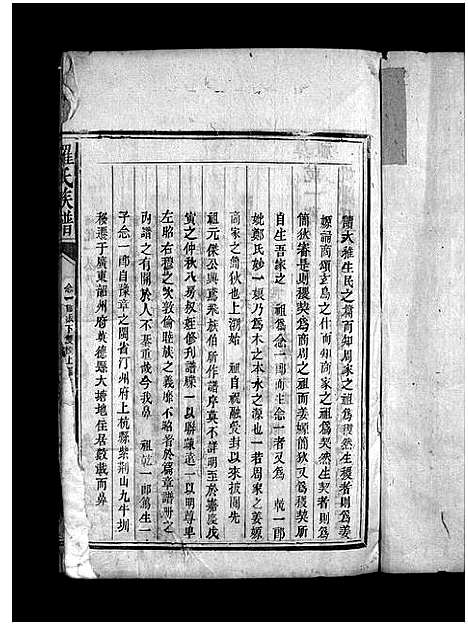 讀大雅生民之篇而知周家之祖為稷然生稷者則為姜
嫄誦商頌玄鳥之什而知商家之祖為契然生契者則為
簡狄審是則稷契為商周之祖而姜嫄簡狄又為稷契所
自生吾家之 祖為念一郎而生念一者又為 乾一郎
妣鄭氏妙一娘乃為木之本水之源也一若周家之姜嫄
商家之簡狄也上溯始 祖自祝融受封以來披閱先
祖元保公興鳶飛族伯所作譜序莫不詳明至於嘉慶戊
寅之仲秋八房倡議續修族譜一以聯疎遠一以明尊卑
左昭右穆之次敦倫睦族之義靡不昭著於篇章譜冊之
內譜之有關於人不甚重哉今我鼻 祖乾一郎為生一
子念一郎自豫章之閩省汀州府上杭縣紫荊山九牛圳
移遷于廣東韶州府英德縣大塘地住居數載而鼻
羅氏族譜